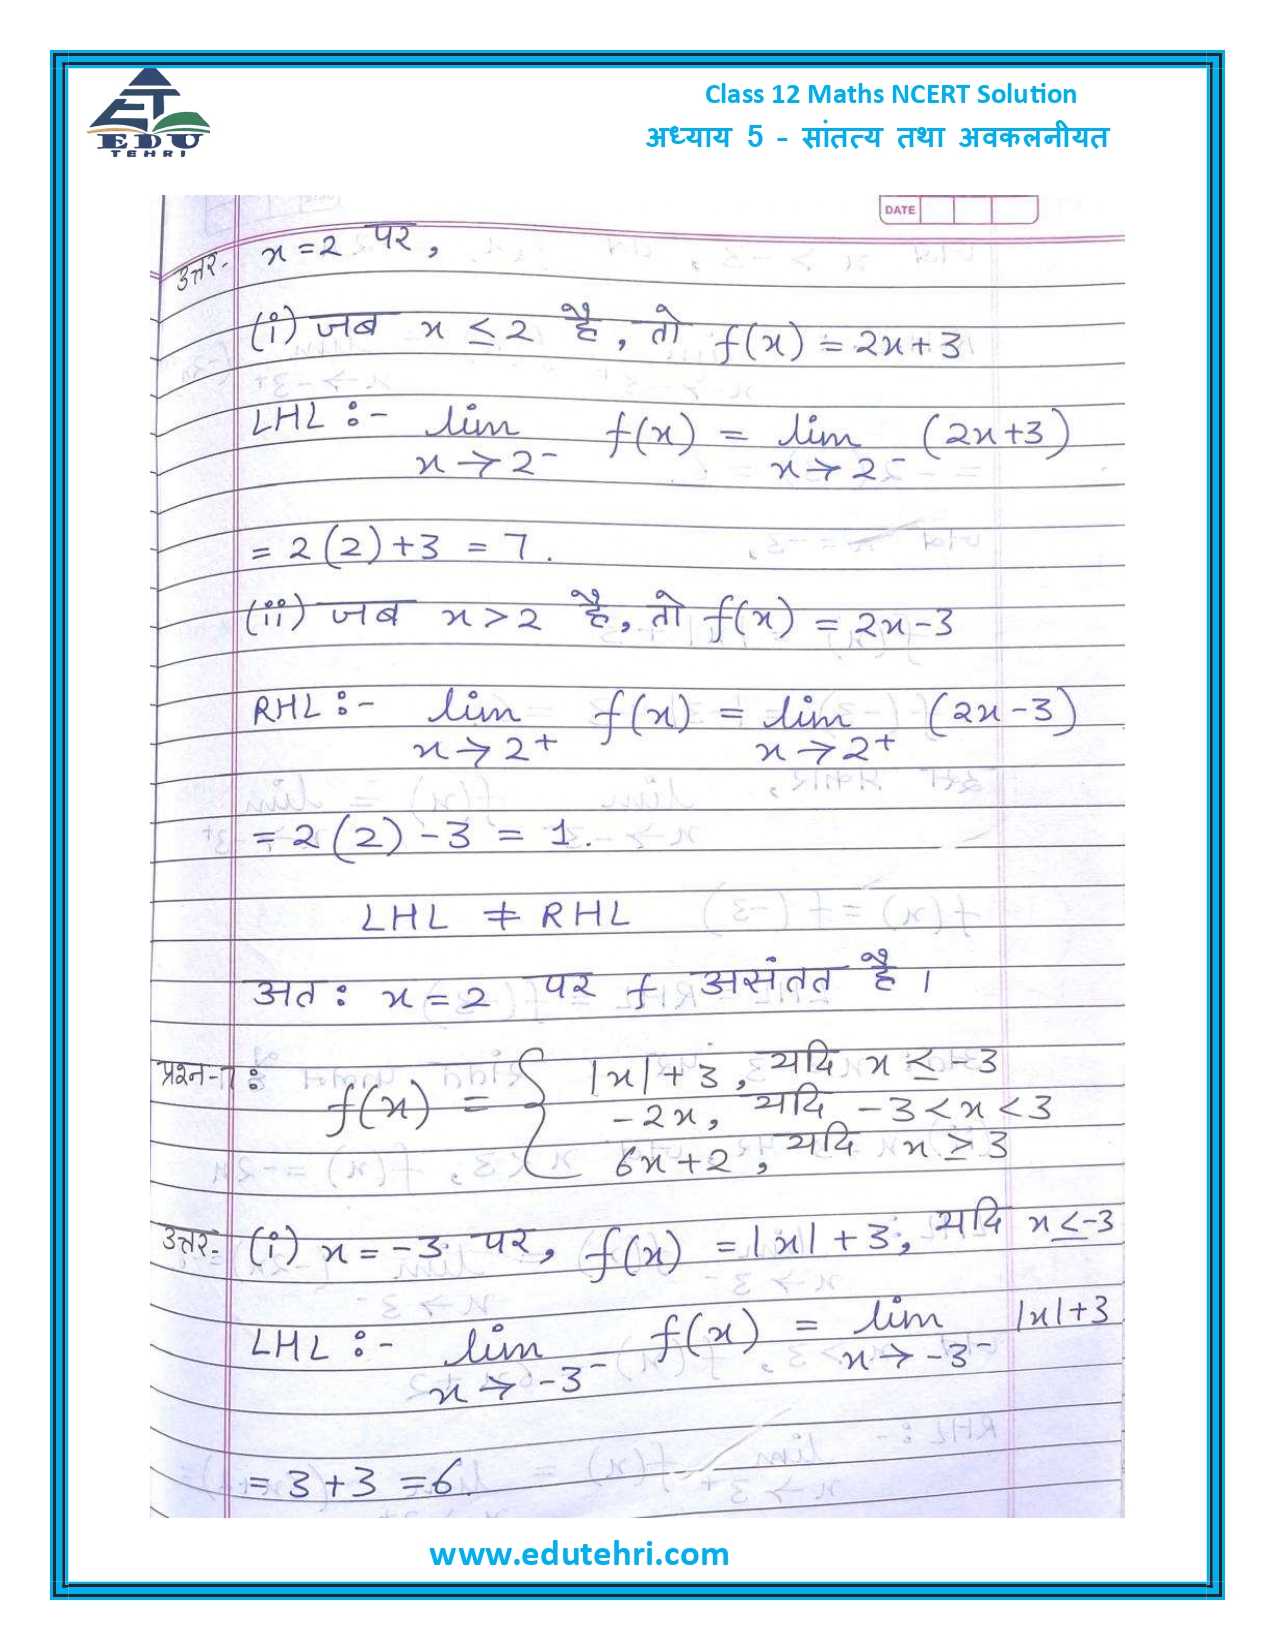 Class 12 Maths NCERT Solution
अध्याय 5 - सांतत्य तथा अवकलनीयत
EDU
TEHRI
DATE
उत्तर- x=2 पर,
(i) जब x ≤ 2 है, तो f(x) = 2x+3
LHL :- lim f(x) = lim (2x+3)
x→2⁻ x→2⁻
= 2(2)+3 = 7.
(ii) जब x>2 है, तो f(x) = 2x-3
RHL :- lim f(x) = lim (2x-3)
x→2⁺ x→2⁺
= 2(2)-3 = 1.
LHL ≠ RHL
अत: x=2 पर f असंतत है।
प्रश्न-7: f(x) = { |x|+3, यदि x ≤ -3
-2x, यदि -3<x<3
6x+2, यदि x ≥ 3
उत्तर- (i) x=-3 पर, f(x) = |x|+3, यदि x≤-3
LHL :- lim f(x) = lim |x|+3
x→-3⁻ x→-3⁻
= 3+3 = 6.
www.edutehri.com